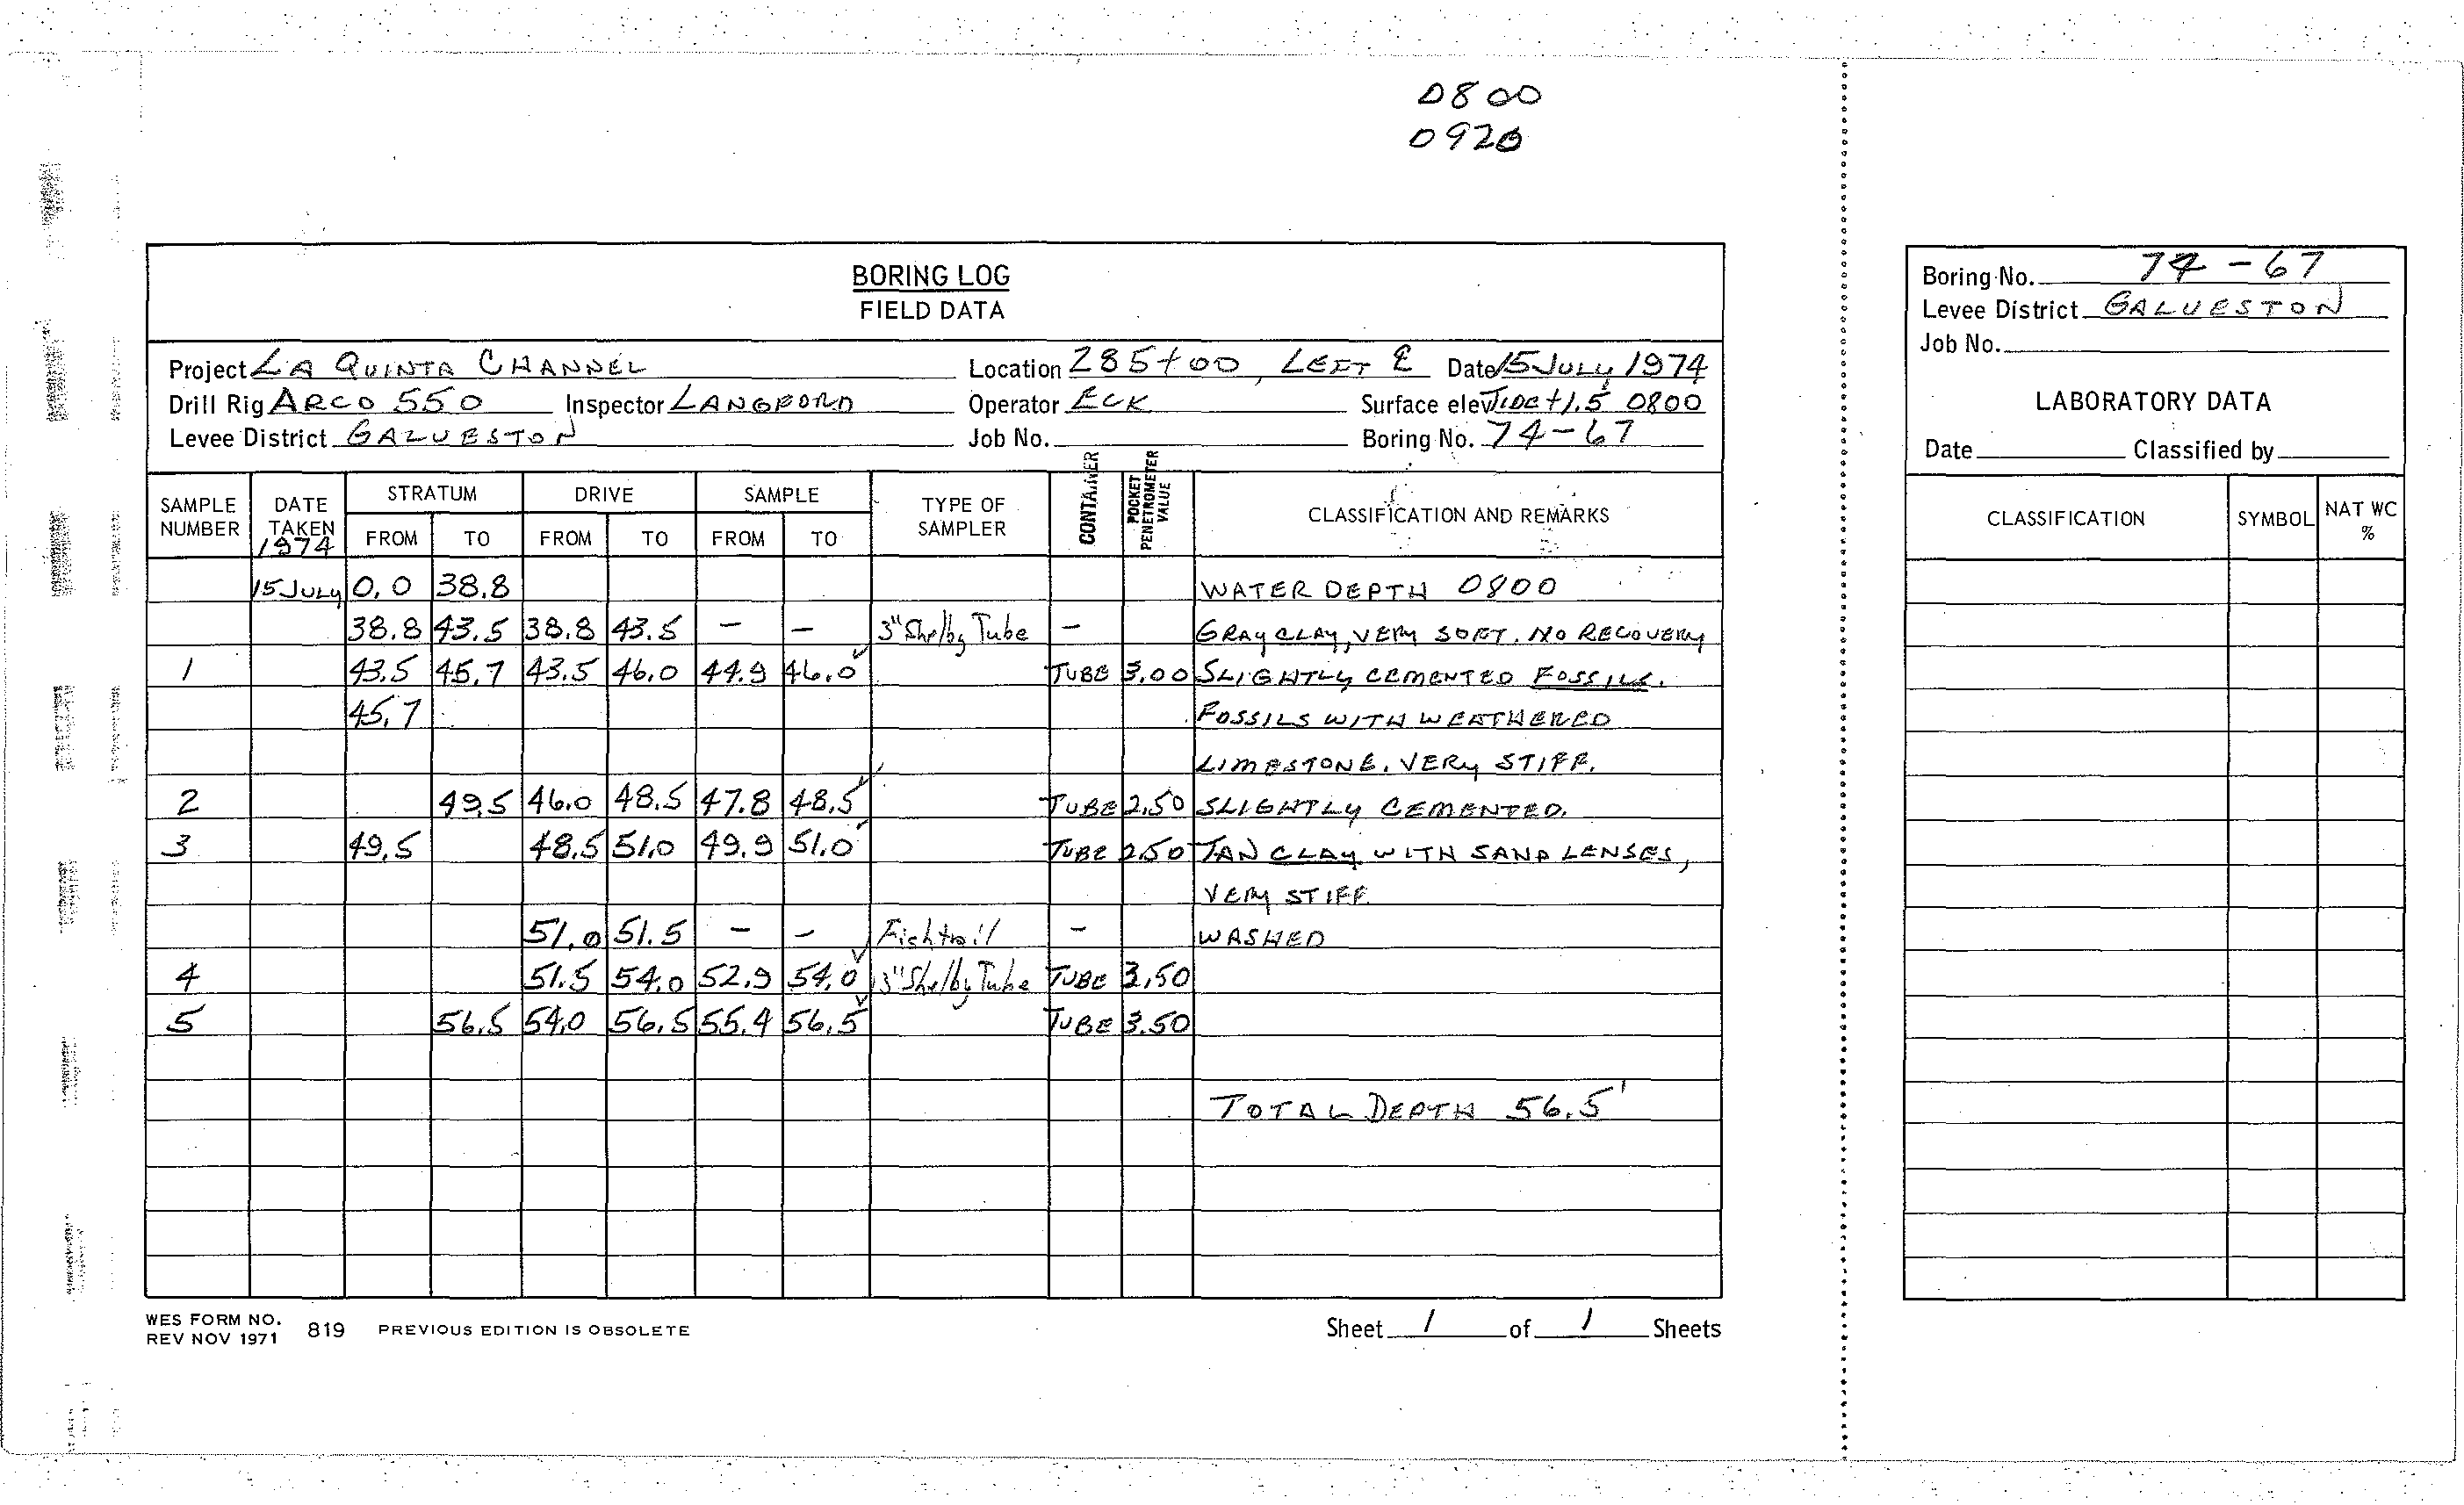 0800
0920
BORING LOG
FIELD DATA
Project LA QUINTA CHANNEL Location 285+00, LEFT ℄ Date 15 JULY 1974
Drill Rig ARCO 550 Inspector LANGFORD Operator ECK Surface elev TIDE +1.5 0800
Levee District GALVESTON Job No. Boring No. 74-67
SAMPLE NUMBER DATE TAKEN 1974 STRATUM FROM TO DRIVE FROM TO SAMPLE FROM TO TYPE OF SAMPLER CONTAINER POCKET PENETROMETER VALUE CLASSIFICATION AND REMARKS
15 JULY 0.0 38.8 WATER DEPTH 0800
38.8 43.5 38.8 43.5 - - 3" Shelby Tube - GRAY CLAY, VERY SOFT. NO RECOVERY
1 43.5 45.7 43.5 46.0 44.9 46.0 TUBE 3.00 SLIGHTLY CEMENTED FOSSILS.
45.7 FOSSILS WITH WEATHERED
LIMESTONE. VERY STIFF.
2 49.5 46.0 48.5 47.8 48.5 TUBE 2.50 SLIGHTLY CEMENTED.
3 49.5 48.5 51.0 49.9 51.0 TUBE 2.50 TAN CLAY WITH SAND LENSES,
VERY STIFF.
51.0 51.5 - - Fishtail - WASHED
4 51.5 54.0 52.9 54.0 3" Shelby Tube TUBE 3.50
5 56.5 54.0 56.5 55.4 56.5 TUBE 3.50
TOTAL DEPTH 56.5'
WES FORM NO. 819 PREVIOUS EDITION IS OBSOLETE
REV NOV 1971
Sheet 1 of 1 Sheets
Boring No. 74-67
Levee District GALVESTON
Job No.
LABORATORY DATA
Date Classified by
CLASSIFICATION SYMBOL NAT WC %